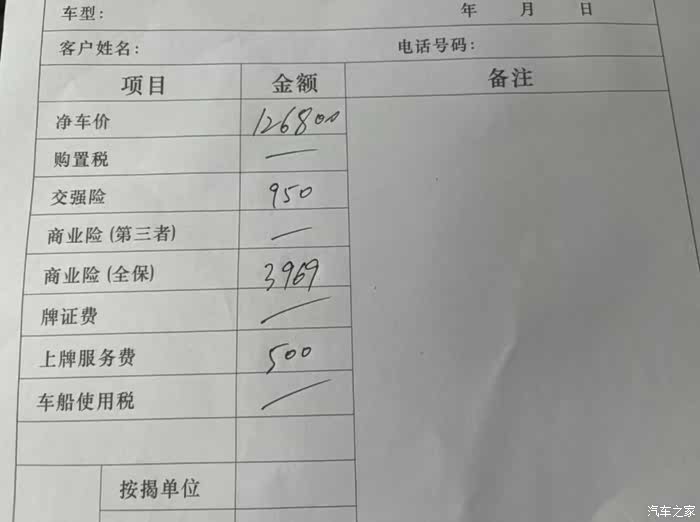 车型： 年 月 日
客户姓名： 电话号码：
项目 金额 备注
净车价 126800
购置税 —
交强险 950
商业险(第三者) —
商业险(全保) 3969
牌证费 —
上牌服务费 500
车船使用税 —
按揭单位
汽车之家